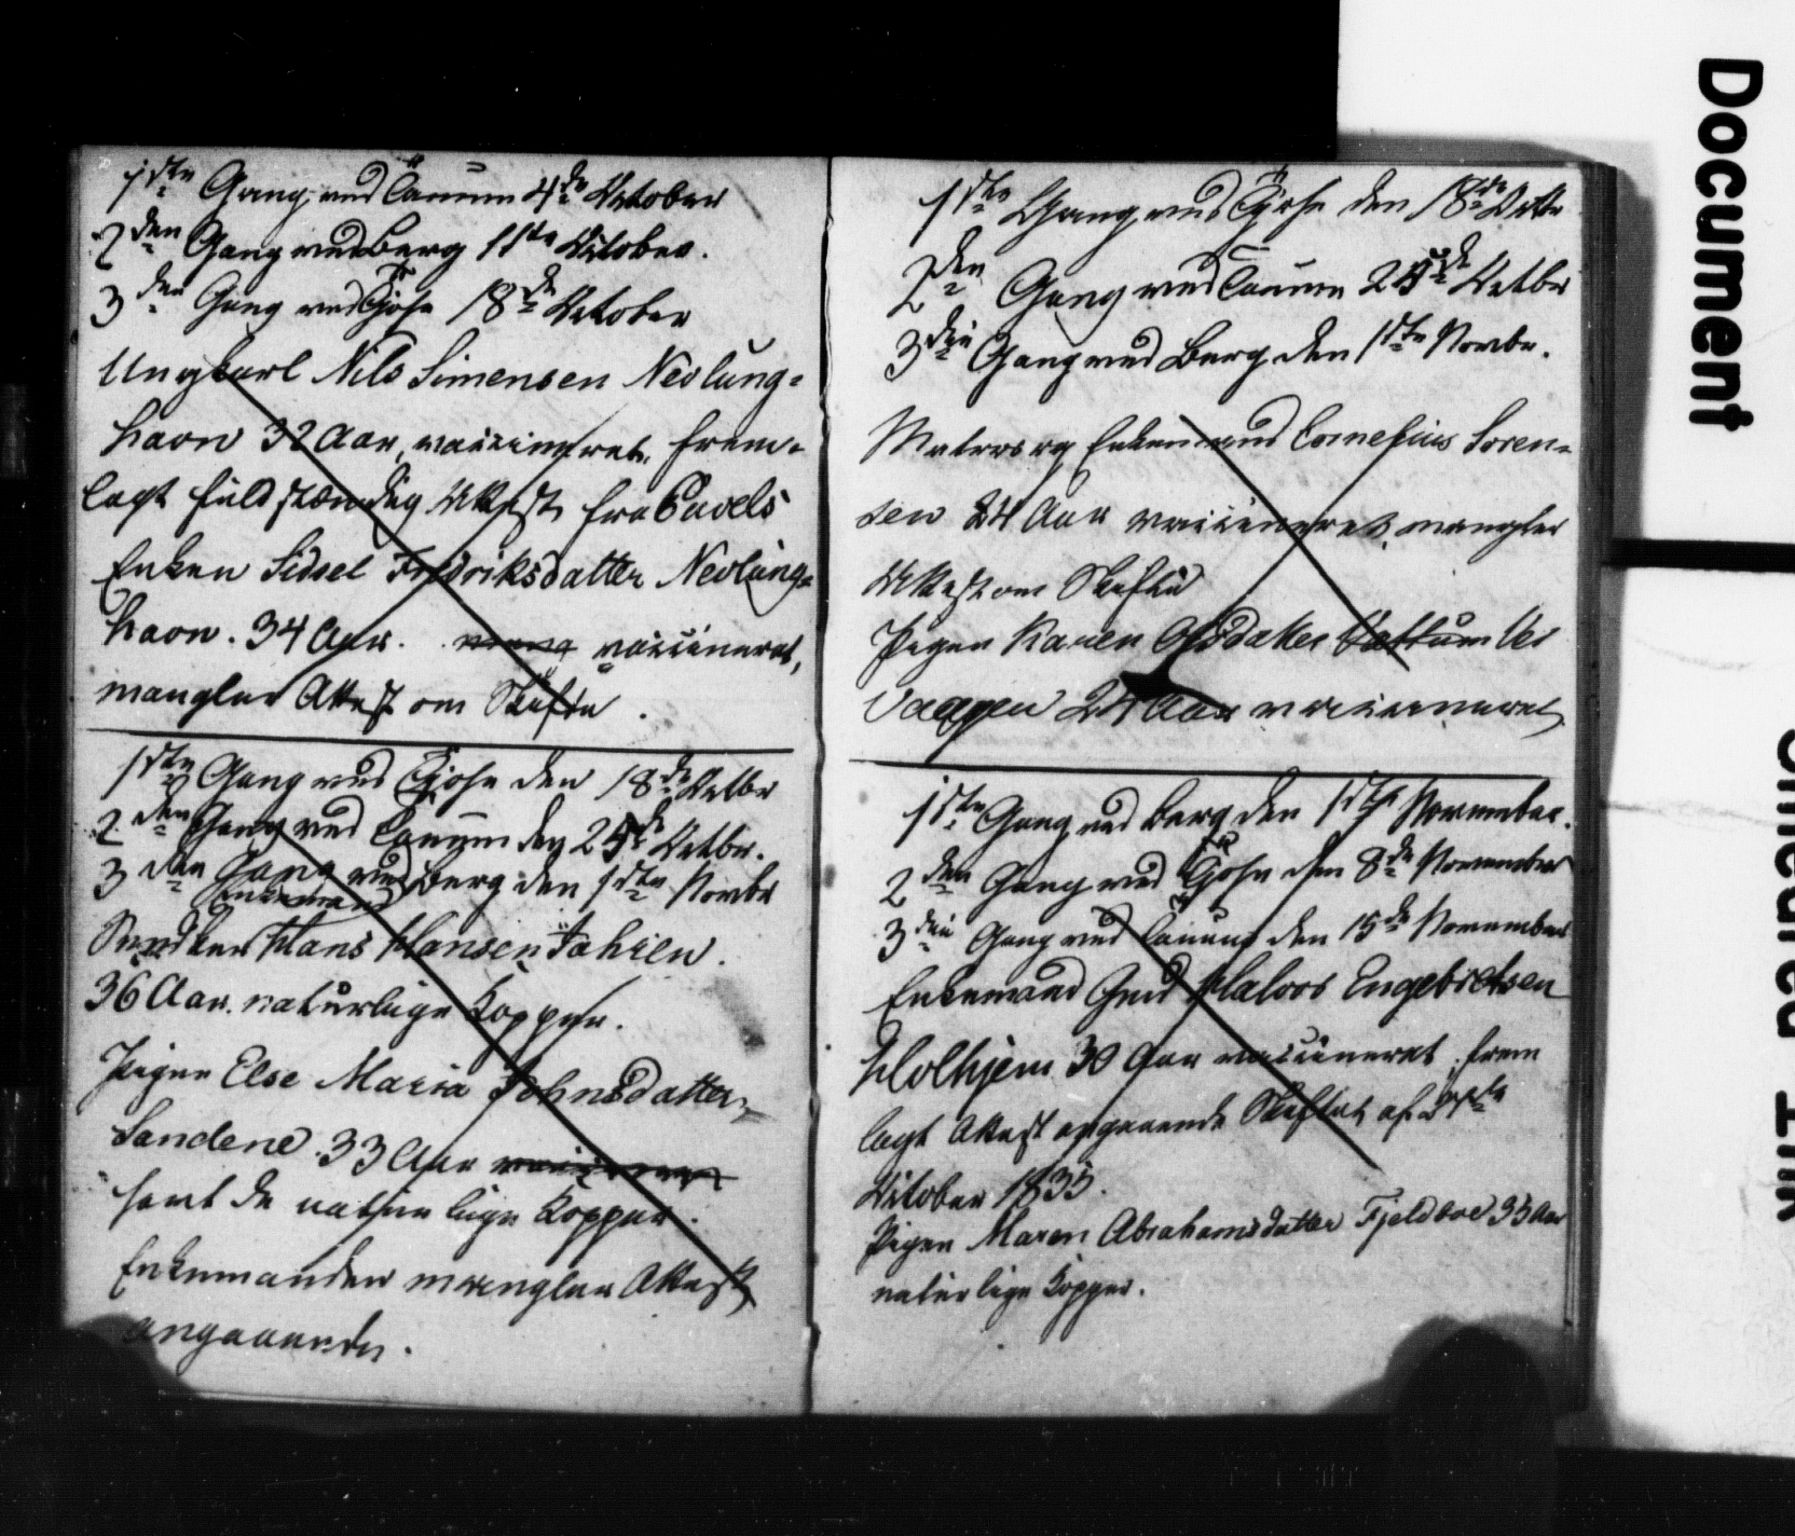 1ste Gang ved Laurum 4de October
2den Gang ved Berg 11te October.
3die Gang ved Tjøse 18de October
Ungkarl Nils Simensen Nevlung-
havn 32 Aar, vaccineret, frem-
lagt fuldstændig Attest fra
Enken Sidsel Fredriksdatter Nevlung-
havn. 34 Aar. vaccineret,
mangler Attest om Skifte.
1ste Gang ved Tjøse den 18de Octbr
2den Gang ved den 25de Octbr.
3die Gang ved Berg den 1ste Novbr
Enkemand
Hans Hansen
36 Aar. naturlige Kopper.
Pigen Else Maria Johnsdatter
Sandene. 33 Aar
havt de naturlige Kopper.
Enkemanden mangler Attest
angaaende.
1ste Gang ved Tjøse den 18de Octbr
2den Gang ved 25de Octbr
3die Gang ved Berg den 1ste Novbr.
Matros og Enkemand Cornelius Soren-
sen 24 Aar vaccineret, mangler
Attest om Skifte
Pigen Karen Olsdatter
Vaagen 24 Aar vaccineret
1ste Gang ved Berg den 1ste November.
2den Gang ved Tjøse den 8de November
3die Gang ved den 15de November
Enkemand Halvor Engebretsen
Holhjem 30 Aar vaccineret, frem
lagt Attest angaaende Skiftet af
October 1835.
Pigen Maren Abrahamsdatter Fjeldboe 35 Aar
naturlige Kopper.
Document